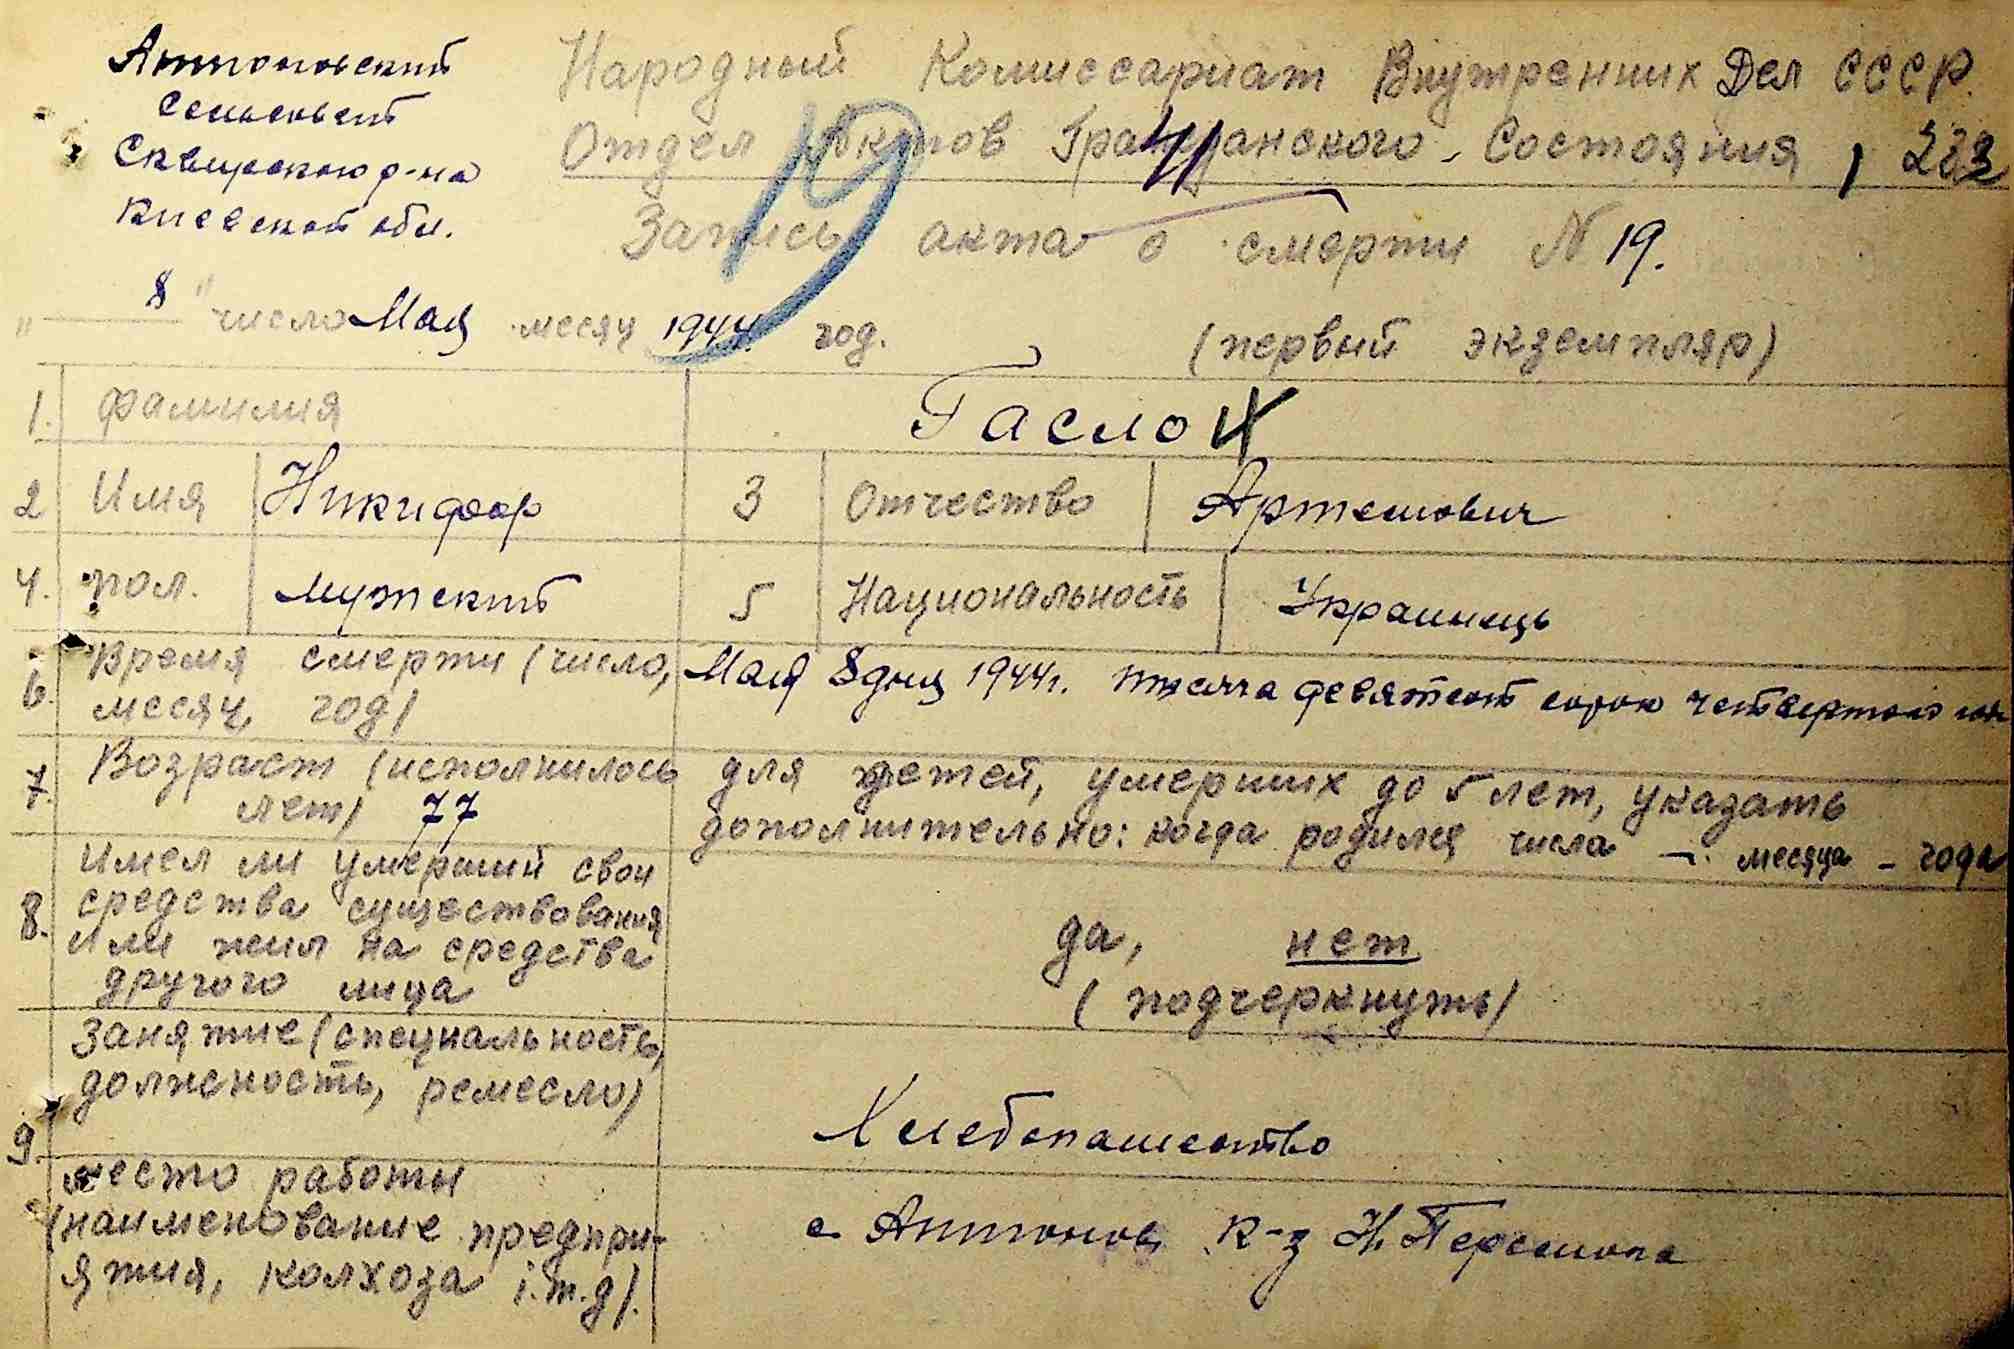 Антоновский
Сельсовет
Сквирского р-на
Киевской обл.
Народный Комиссариат Внутренних Дел СССР.
Отдел Актов Гражданского Состояния
19
Запись акта о смерти N 19.
"8" число Мая месяц 1944 год.
(первый экземпляр)
1. фамилия Гасло
2 Имя Никифор 3 Отчество Артемович
4. пол. мужский 5 Национальность Украинець
6. Время смерти (число, месяц, год) Мая 8 дня 1944г. тысяча девятсот сорок четвертого
7. Возраст (исполнилось лет) 77
для детей, умерших до 5 лет, указать
дополнительно: когда родился числа - месяца - года
8. Имел ли умерший свои
средства существования
или жил на средства
другого лица
да, нет
(подчеркнуть)
9. Занятие (специальность,
должность, ремесло)
Хлебопашество
место работы
(наименование предпри-
ятия, колхоза і.т.д).
с Антонов к-з